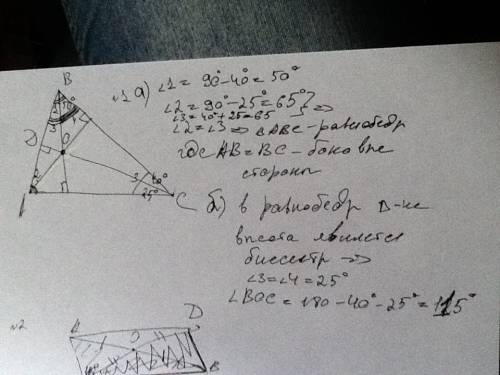 B
50°
4
3
1
D
O
2
A
3
40°
25°
C
№1 а) ∠1 = 90° - 40° = 50°
∠2 = 90° - 25° = 65°
∠3 = 40° + 25 = 65 } ⇒
∠2 = ∠3 ⇒ △ABC - равнобедр
где AB = BC - боковые
стороны
б) в равнобедр △-ке
высота является
биссектр ⇒
∠3 = ∠4 = 25°
∠BOC = 180 - 40° - 25° = 115°
№2
A
O
D
B